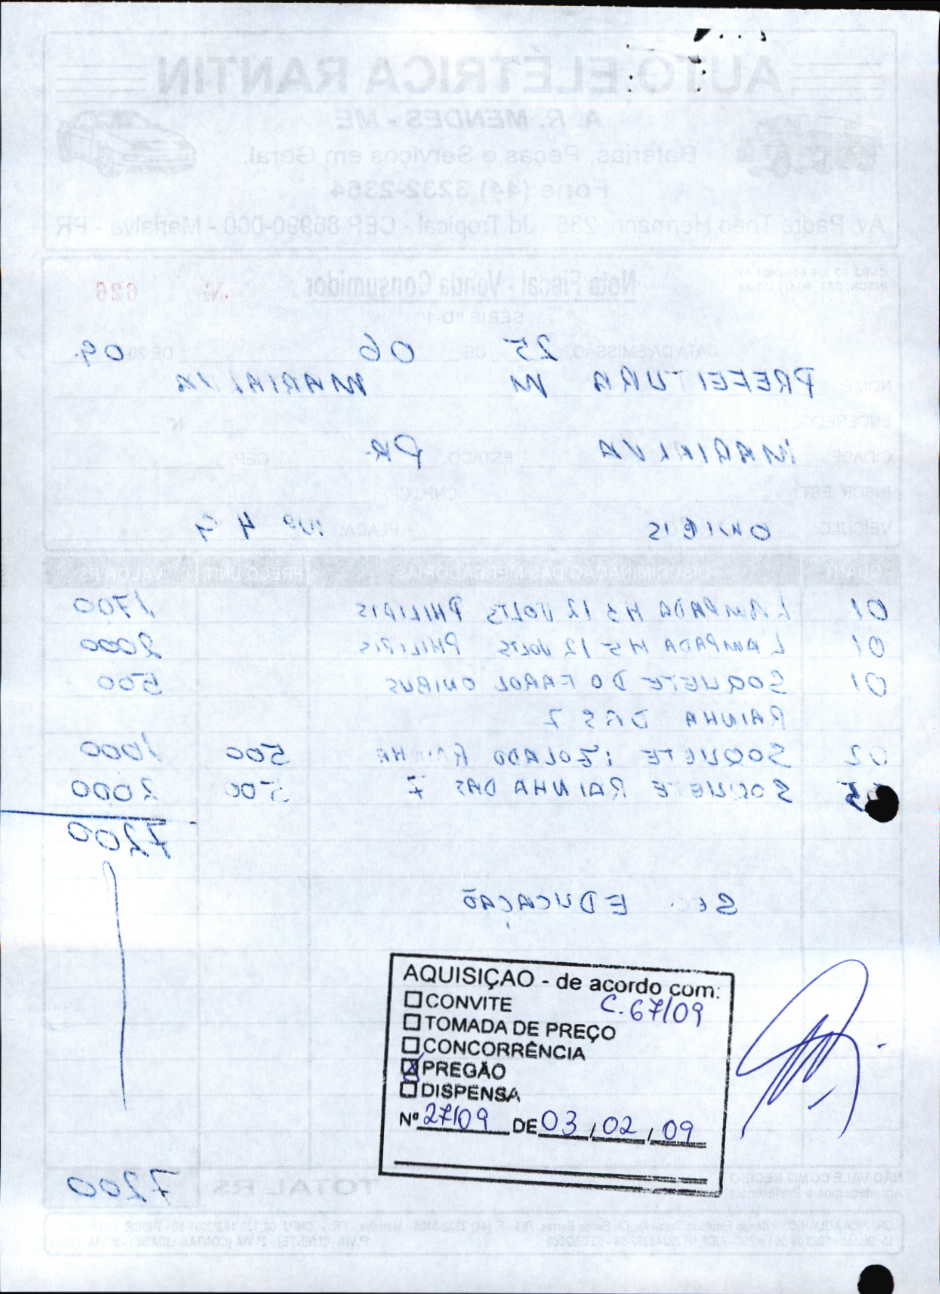 AUTO ELÉTRICA RANTIN
A. R. MENDES - ME
Baterias, Peças e Serviços em Geral.
Fone (44) 3232-2364
Av. Padre Théo Hermann, 235 Jd Tropical - CEP 86990-000 - Marialva - PR
Nota Fiscal - Venda Consumidor
Nº 626
SÉRIE "D-1"
DATA DA EMISSÃO 25 DE 06 DE 09
NOME PREFEITURA M MARIALVA
ENDEREÇO Nº
CIDADE MARIALVA ESTADO PR CEP
INSCR. EST. CNPJ
VEÍCULO ONIBUS PLACA Nº 49
QUANT. DISCRIMINAÇÃO DAS MERCADORIAS PREÇO UNIT. VALOR R$
01 LAMPADA H5 12 VOLTS PHILIPIS 1700
01 LAMPADA H5 12 VOLTS PHILIPIS 2000
01 SOQUETE DO FAROL ONIBUS 500
RAINHA DAS 7
02 SOQUETE IZOLADO RAINHA 500 1000
SOQUETE RAINHA DAS 7 500 2000
7200
SEC EDUCAÇÃO
AQUISIÇÃO - de acordo com:
☐ CONVITE C.67/09
☐ TOMADA DE PREÇO
☐ CONCORRÊNCIA
☒ PREGÃO
☐ DISPENSA
Nº 27/09 DE 03 / 02 / 09
NÃO VALE COMO RECIBO
TOTAL R$ 7200